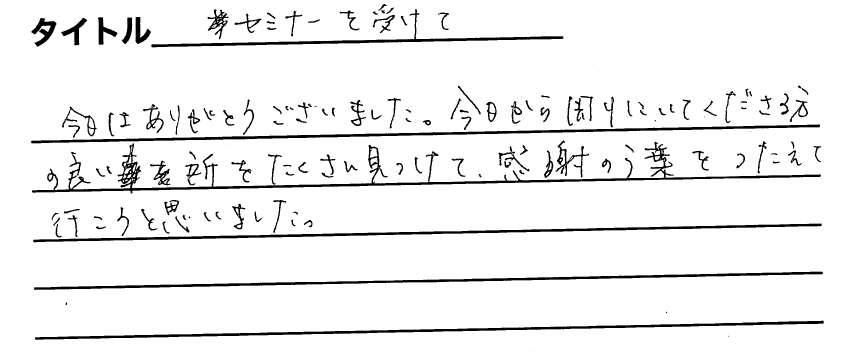 タイトル セミナーを受けて
今日はありがとうございました。今日から周りにいてくださる方
の良い所をたくさん見つけて、感謝の言葉をつたえて
行こうと思いました。